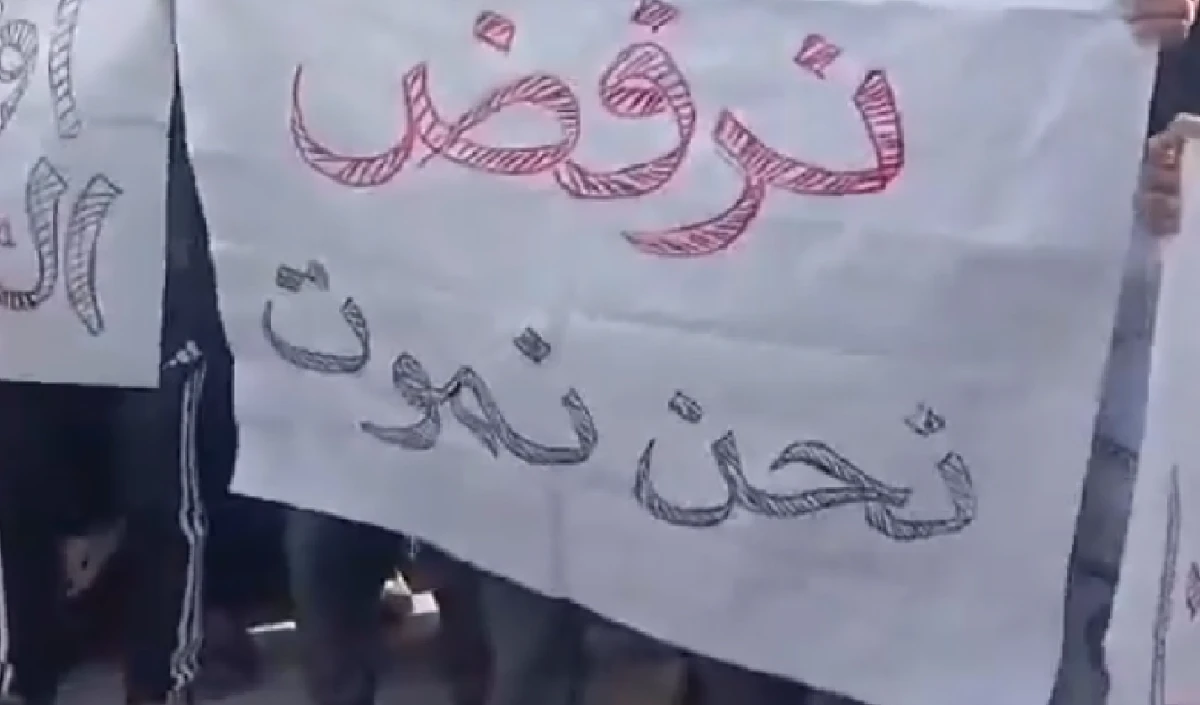 نرفض
نحن نموت